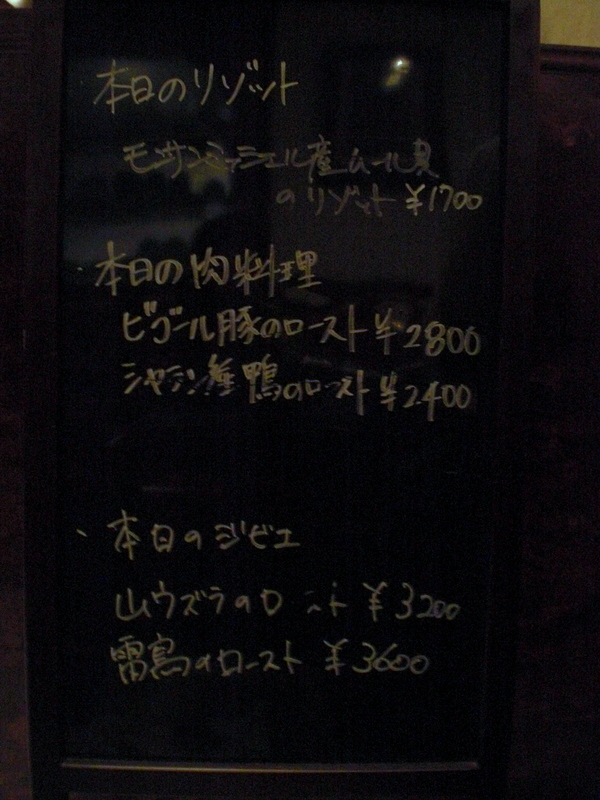 本日のリゾット
モンサンミッシェル産ムール貝
のリゾット ¥1700
・本日の肉料理
ビゴール豚のロースト ¥2800
シャラン種 鴨のロースト ¥2400
、本日のジビエ
山ウズラのロースト ¥3200
雷鳥のロースト ¥3600